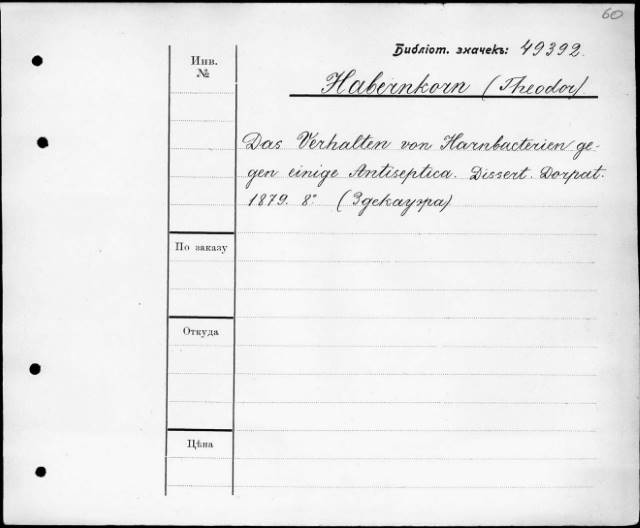 60
Библіот. значекъ: 49392.
Инв.
№
Habernkorn (Theodor)
Das Verhalten von Harnbacterien ge-
gen einige Antiseptica. Dissert. Dorpat.
1879. 8° (3 декауэра)
По заказу
Откуда
Цѣна